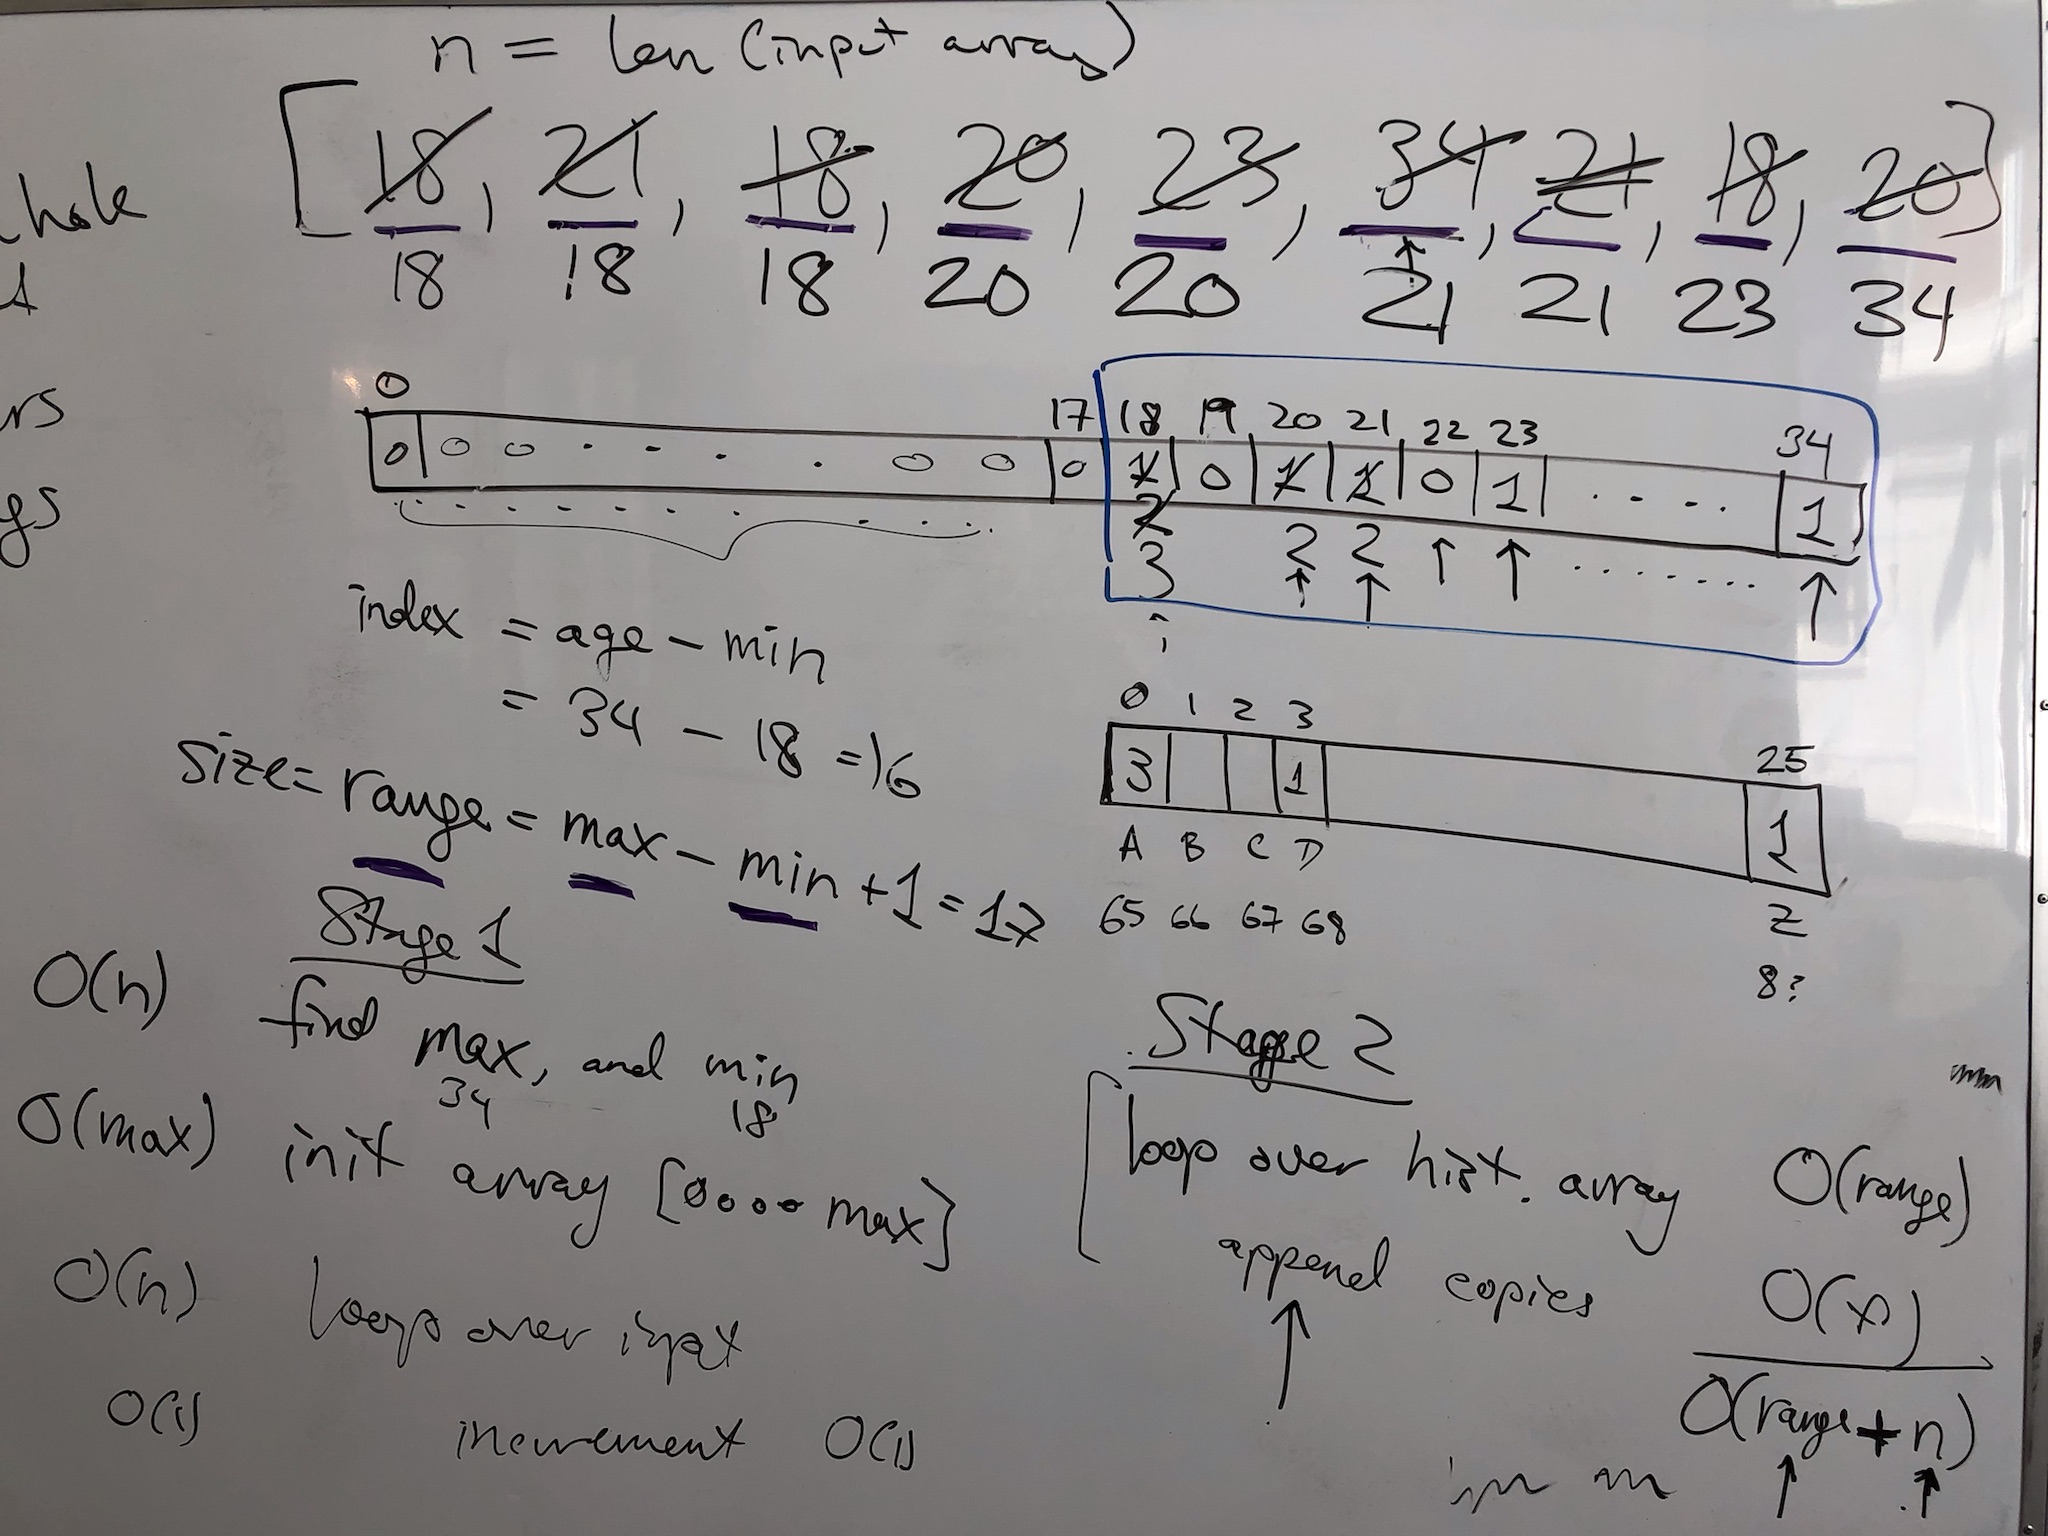 n = len (input array)
[18, 21, 18, 20, 23, 34, 21, 18, 20]
18 18 18 20 20 21 21 23 34
0 17 18 19 20 21 22 23 34
0 0 0 . . . . 0 0 0 1 0 1 1 0 1 . . . . 1
2 2 2
3
index = age - min
= 34 - 18 = 16
size = range = max - min + 1 = 17
0 1 2 3 25
3 1 1
A B C D Z
65 66 67 68 8?
Stage 1
O(n) find max, and min
34 18
O(max) init array [0... max]
O(n) loop over input
O(1) increment O(1)
Stage 2
loop over hist. array O(range)
append copies
O(range + n)